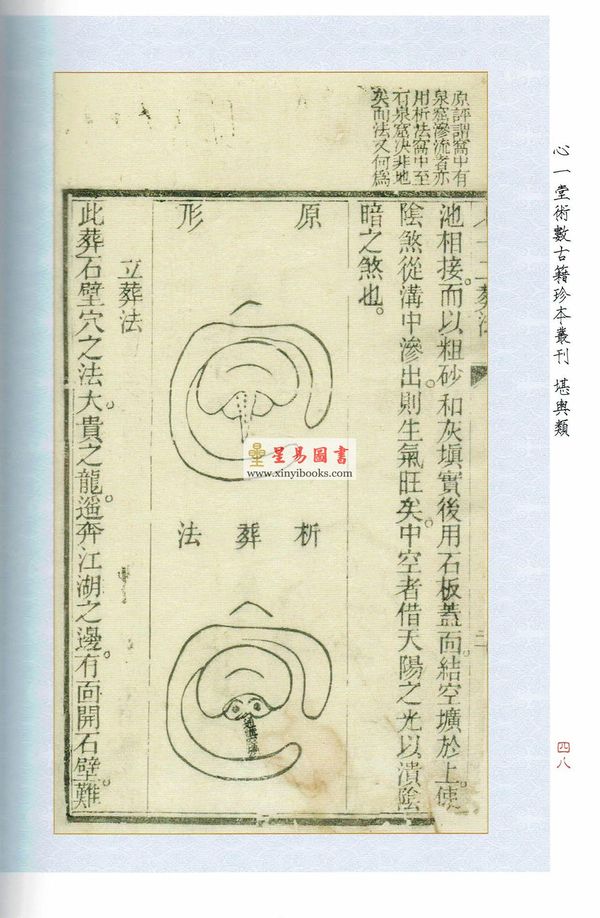 心一堂術數古籍珍本叢刊 堪輿類
四八
原評謂窩中有
泉窟滲流者亦
用析法窩中至
有泉窟決非地
矣而法又何爲
十二葬法
池相接。而以粗砂和灰塡實後用石板蓋面。結空壙於上。使
陰煞從溝中滲出。則生氣旺矣。中空者借天陽之光以潰陰
暗之煞也。
原形
析葬法
立葬法
此葬石壁穴之法。大貴之龍。遥奔江湖之邊。有面開石壁。難
星易圖書
www.xinyibooks.com